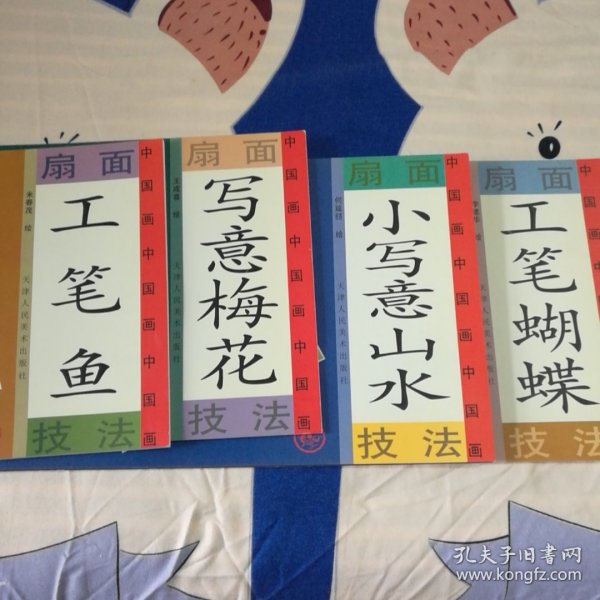 扇面
工笔鱼
技法
中国画中国画中国画
米春茂 绘
天津人民美术出版社
扇面
写意梅花
技法
中国画中国画中国画
王成喜 绘
天津人民美术出版社
扇面
小写意山水
技法
中国画中国画中国画
何延喆 绘
天津人民美术出版社
扇面
工笔蝴蝶
技法
中国画
天津人民美术出版社
孔夫子旧书网
www.kongfz.com